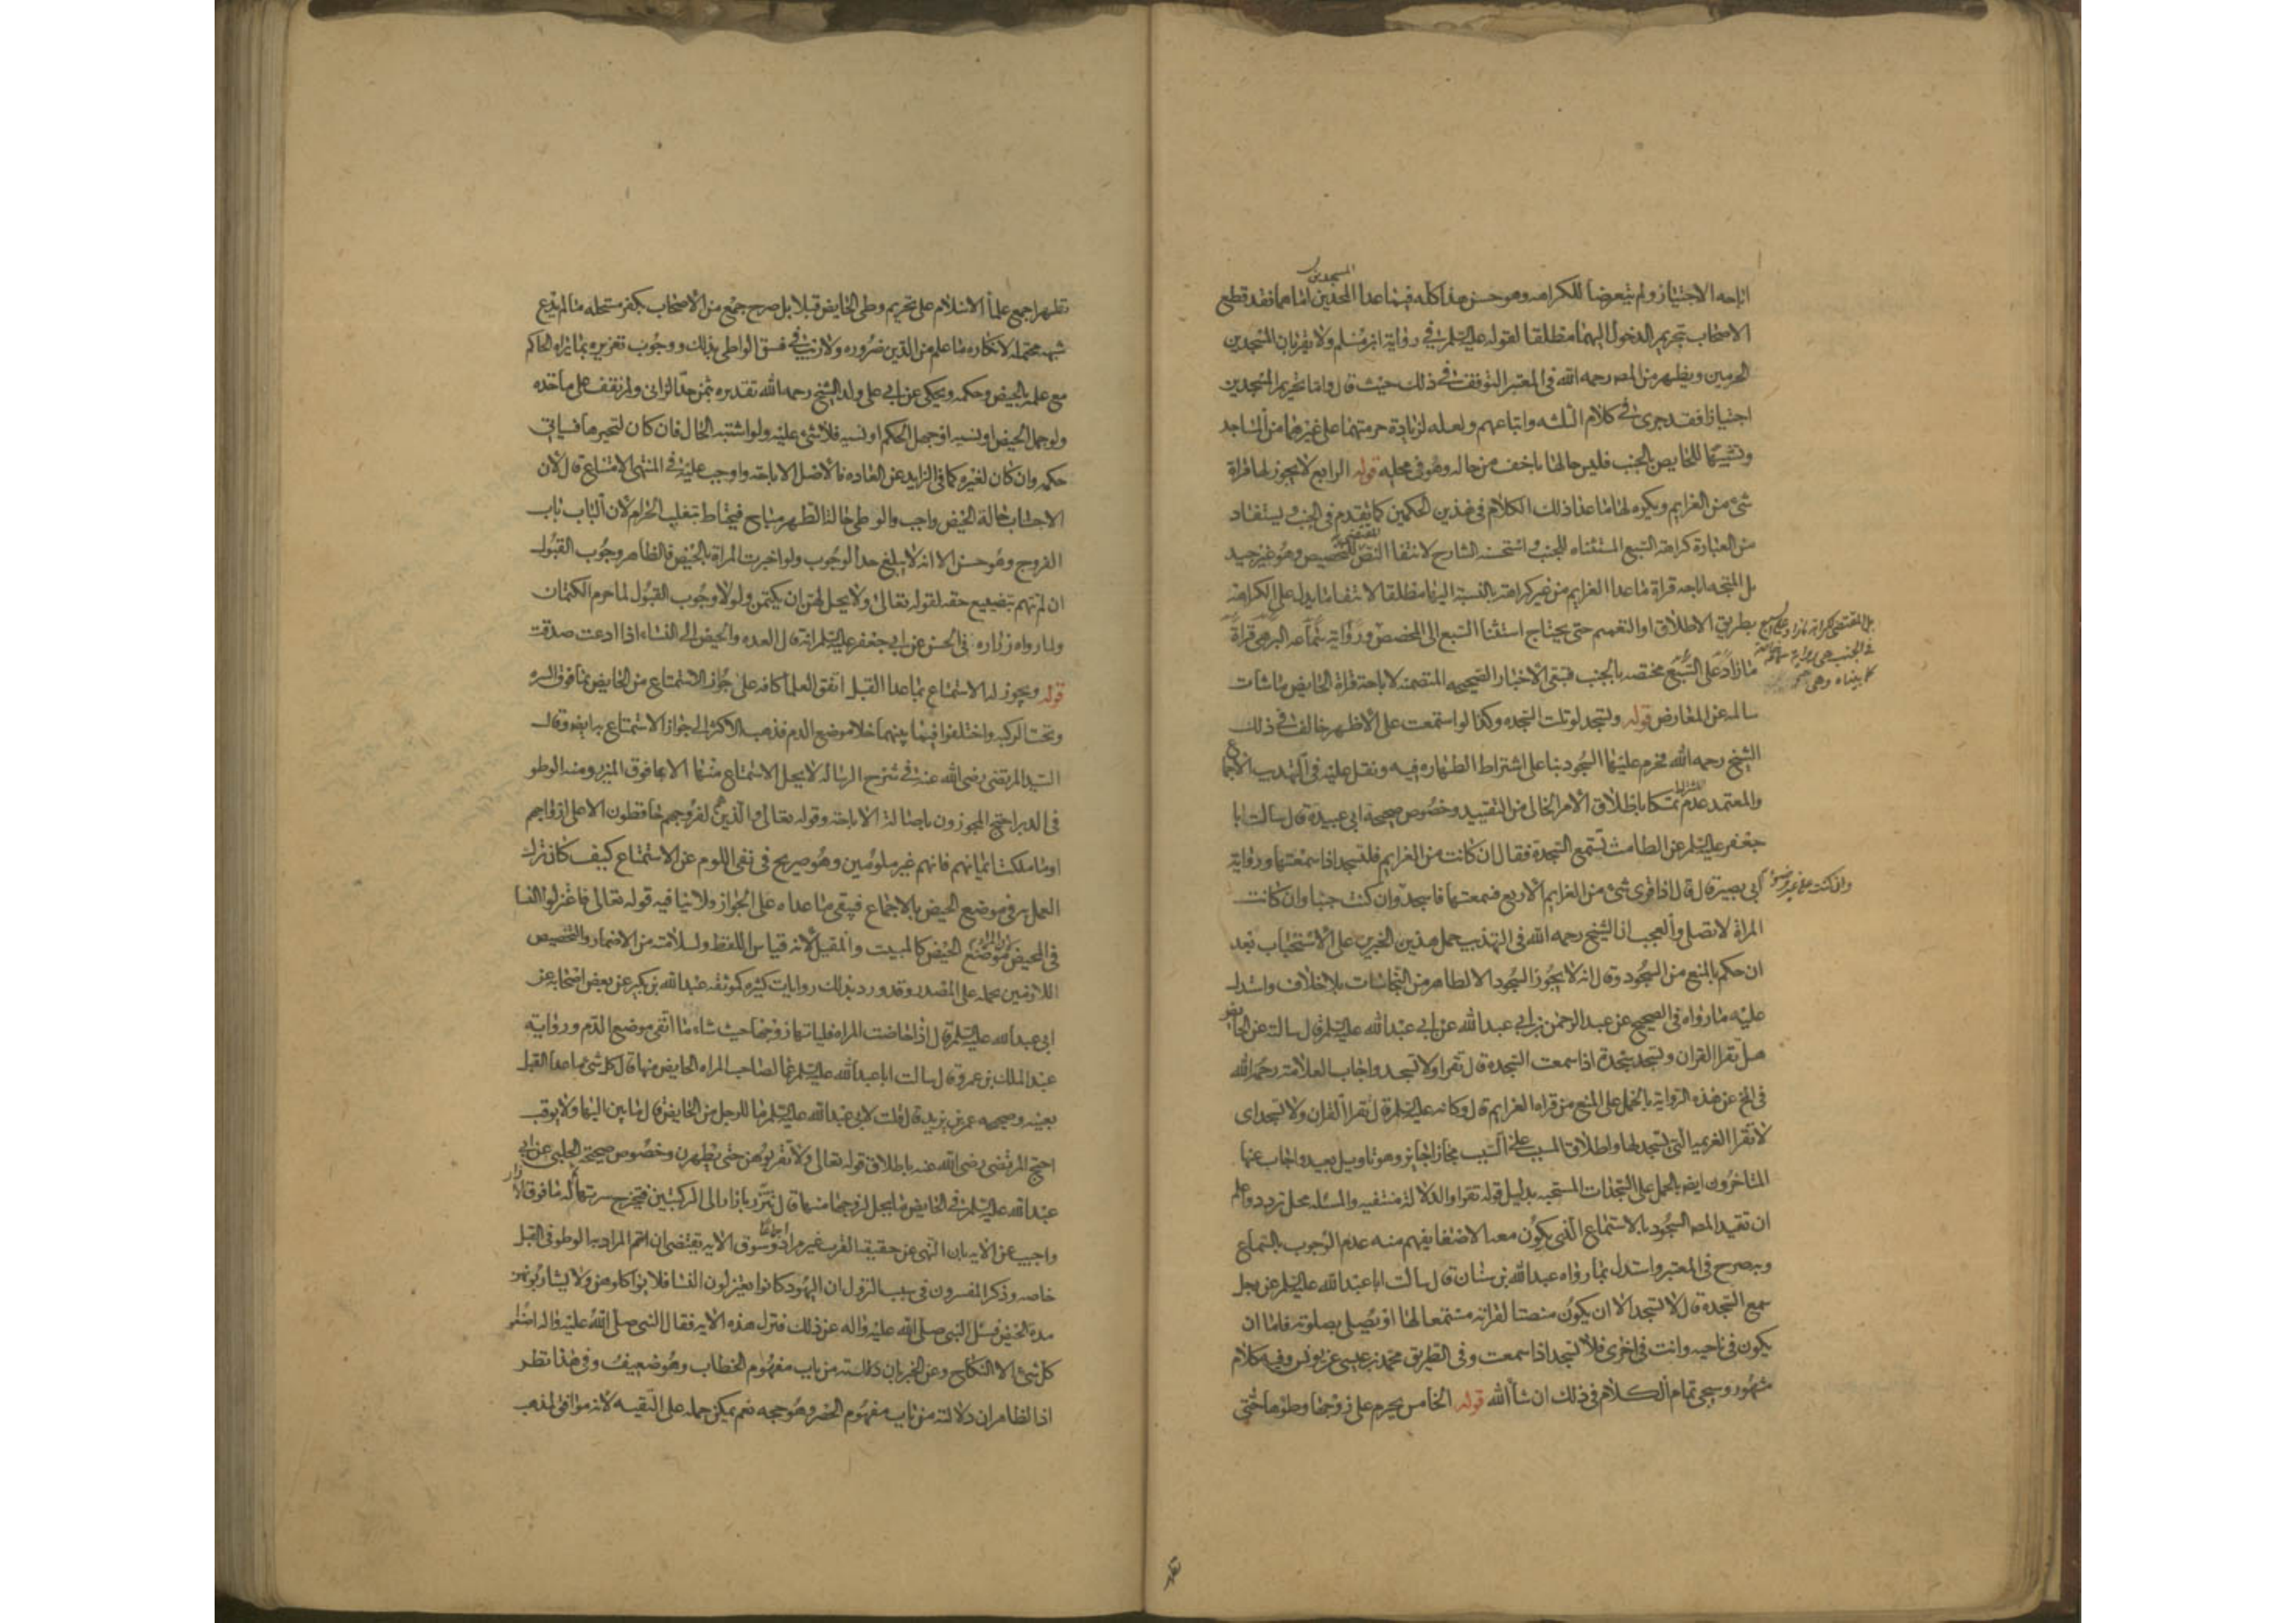 المسجدين
اباحه الاجتياز ولم يتعرضا للكراهه وهو حسن هذا كله فيما عدا المسجدين اما هما فقد قطع
الاصحاب بتحريم الدخول اليهما مطلقا لقوله عليه السلم في رواية ابن مسلم ولا يقربان المسجدين
الحرمين ويظهر من المصـ رحمه الله في المعتبر التوقف في ذلك حيث قال واما تحريم المسجدين
اجتيازا فقد جرى في كلام الثلثه واتباعهم ولعله لزيادة حرمتهما على غيرهما من المساجد
وتشبيها للحايض بالجنب فليس حالها باخف من حاله وهو في محله قوله الرابع لا يجوز لها قراة
شئ من العزايم ويكره لها ما عدا ذلك الكلام في هذين الحكمين كما تقدم في الجنب ويستفاد
من العبارة كراهة السبع المستثناه للجنب واستحسنه الشارح لانتفا النص المقتضي للتخصيص وهو غير جيد
بل المتجه اباحه قراة ما عدا العزايم من غير كراهة بالنسبة اليها مطلقا لانتفا ما يدل على الكراهة
بطريق الاطلاق او التعميم حتى يحتاج استثنا السبع الى المخصص ورواية سماعه التي هي قراة
بل المقتضي لكراهة ما زاد على السبع
في الجنب هي رواية سماعة
كما بيناه وهي
ما زاد على السبع مختصه بالجنب فتبقى الاخبار الصحيحه المتضمنه لاباحة قراة الحايض ما شات
سالمه عن المعارض قوله وتسجد لو تلت السجده وكذا لو استمعت على الاظهر خالف في ذلك
الشيخ رحمه الله فحرم عليها السجود بنا على اشتراط الطهاره فيه ونقل عليه في التهذيب الاجماع
والمعتمد عدم اشتراط تمسكا باطلاق الامر الخالي من التقييد وخصوص صحيحة ابي عبيدة قال سالت ابا
جعفر عليه السلم عن الطامث تستمع السجدة فقال ان كانت من العزايم فلتسجد اذا سمعتها ورواية
ابي بصير قال قال اذا قرى شئ من العزايم الاربع فسمعتها فاسجد وان كنت جنبا وان كانت
وان كنت على غير وضوء
المراة لا تصلي والعجب ان الشيخ رحمه الله في التهذيب حمل هذين الخبرين على الاستحباب بعد
ان حكم بالمنع من السجود وقال انه لا يجوز السجود الا لطاهر من النجاسات بلا خلاف واستدل
عليه ما رواه في الصحيح عن عبد الرحمن بن ابي عبد الله عن ابي عبد الله عليه السلم قال سالته عن الحايض
هل تقرا القران وتسجد سجدة اذا سمعت السجدة قال تقرا ولا تسجد واجاب العلامة رحمه الله
في المخ عن هذه الرواية بالحمل على المنع من قراة العزايم قال وكانه عليه السلم قال تقرا القران ولا تسجد اى
لا تقرا العزيمة التي تسجد لها واطلاق المسبب على السبب مجاز جايز وهو تاويل بعيد واجاب عنها
المتاخرون ايضا بالحمل على السجدات المستحبه بدليل قوله تقرا والدلالة منتفيه والمسئله محل تردد واعلم
ان تقييد المصـ السجود بالاستماع الذي يكون معه الاصغا يفهم منه عدم الوجوب بالسماع
وبه صرح في المعتبر واستدل بما رواه عبد الله بن سنان قال سالت ابا عبد الله عليه السلم عن رجل
سمع السجدة قال لا تسجد الا ان يكون منصتا لقراته مستمعا لها او يصلي بصلوته فاما ان
يكون في ناحيه وانت في اخرى فلا تسجد اذا سمعت وفي الطريق محمد بن عيسى عن يونس وفيه كلام
مشهور وسيجي تمام الكلام في ذلك ان شا الله قوله الخامس يحرم على زوجها وطؤها حتى
تطهر اجمع علما الاسلام على تحريم وطى الحايض قبلا بل صرح جمع من الاصحاب بكفر مستحله ما لم يدع
شبهه محتمله لانكاره ما علم من الدين ضروره ولا ريب في فسق الواطى بذلك ووجوب تعزيره بما يراه الحاكم
مع علمه بالحيض وحكمه ويحكى عن ابي علي ولد الشيخ رحمه الله تقديره بثمن حد الزانى ولم نقف على ماخذه
ولو جهل الحيض او نسيه او جهل الحكم او نسيه فلا شئ عليه ولو اشتبه الحال فان كان لتحيرها فسياتي
حكمه وان كان لغيره كما في الزايد عن العاده فالاصل الاباحة واوجب عليه في المنتهى الامتناع قال لان
الاجتناب حالة الحيض واجب والوطى حالة الطهر مباح فيحتاط بتغليب الحرام لان الباب باب
الفروج وهو حسن الا انه لا يبلغ حد الوجوب ولو اخبرت المراة بالحيض فالظاهر وجوب القبول
ان لم تتهم بتضييع حقه لقوله تعالى ولا يحل لهن ان يكتمن ولولا وجوب القبول لما حرم الكتمان
ولما رواه زراره في الحسن عن ابي جعفر عليه السلم انه قال العده والحيض الى النساء اذا ادعت صدقت
قوله ويجوز له الاستمتاع بما عدا القبل اتفق العلما كافه على جواز الاستمتاع من الحايض بما فوق السره
وتحت الركبه واختلفوا فيما بينهما خلا موضع الدم فذهب الاكثر الى جواز الاستمتاع به ايضا وقال
السيد المرتضى رضى الله عنه في شرح الرساله لا يحل الاستمتاع منها الا بما فوق الميزر ومنه الوطو
في الدبر احتج المجوزون باصالة الاباحة وقوله تعالى والذين هم لفروجهم حافظون الا على ازواجهم
او ما ملكت ايمانهم فانهم غير ملومين وهو صريح في نفى اللوم عن الاستمتاع كيف كان ترك
العمل به في موضع الحيض بالاجماع فيبقى ما عداه على الجواز ولا ينافيه قوله تعالى فاعتزلوا النسا
في المحيض لان المراد موضع الحيض كالمبيت والمقيل لانه قياس اللفظ ولسلامته من الاضمار والتخصيص
اللازمين بحمله على المصدر وقد ورد بذلك روايات كثيره كموثقة عبد الله بن بكير عن بعض اصحابه عن
ابي عبد الله عليه السلم قال اذا حاضت المراه فلياتها زوجها حيث شاء ما اتقى موضع الدم ورواية
عبد الملك بن عمرو قال سالت ابا عبد الله عليه السلم عما لصاحب المراه الحايض منها قال كل شئ ما عدا القبل
بعينه وصحيحه عمر بن يزيد قال قلت لابي عبد الله عليه السلم ما للرجل من الحايض قال ما بين اليتيها ولا يوقب
احتج المرتضى رضى الله عنه باطلاق قوله تعالى ولا تقربوهن حتى يطهرن وخصوص صحيحة الحلبي عن ابي
عبد الله عليه السلم في الحايض ما يحل لزوجها منها قال تتزر بازار الى الركبتين فتخرج سرتها ثم له ما فوق الازار
واجيب عن الايه بان النهى عن حقيقة القرب غير مراد اجماعا وسوق الايه يقتضى ان المراد به الوطو في القبل
خاصه وذكر المفسرون في سبب النزول ان اليهود كانوا يعتزلون النسا فلا يواكلوهن ولا يشاربوهن
مدة الحيض فسئل النبي صلى الله عليه واله عن ذلك فنزل هذه الايه فقال النبي صلى الله عليه واله اصنعوا
كل شئ الا النكاح وعن الخبر بان دلالته من باب مفهوم الخطاب وهو ضعيف وفي هذا نظر
اذ الظاهر ان دلالته من باب مفهوم الحصر وهو حجه نعم يمكن حمله على التقيه لانه موافق لمذهب